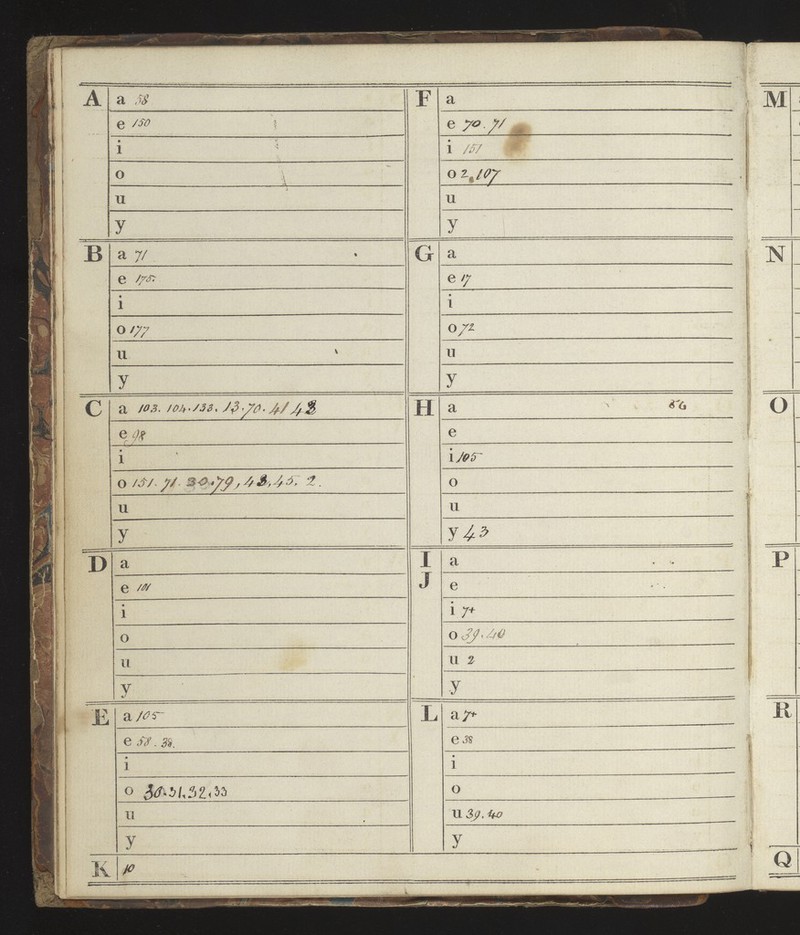 A a 58
e 150
i
o
u
y
B a 71
e 175.
i
o 177
u
y
C a 103. 104. 133. 13. 70. 41 43
e 98
i
o 151. 71. 30. 79, 43, 45. 2.
u
y
D a
e 101
i
o
u
y
E a 105
e 58. 38.
i
o 30. 31, 32, 33
u
y
K 10
F a
e 70. 71
i 151
o 2, 107
u
y
G a
e 17
i
o 72
u
y
H a 86
e
i 105
o
u
y 43
I J a
e
i 7+
o 39. 40
u 2
y
L a 7+
e 38
i
o
u 39. 40
y
M
N
O
P
R
Q